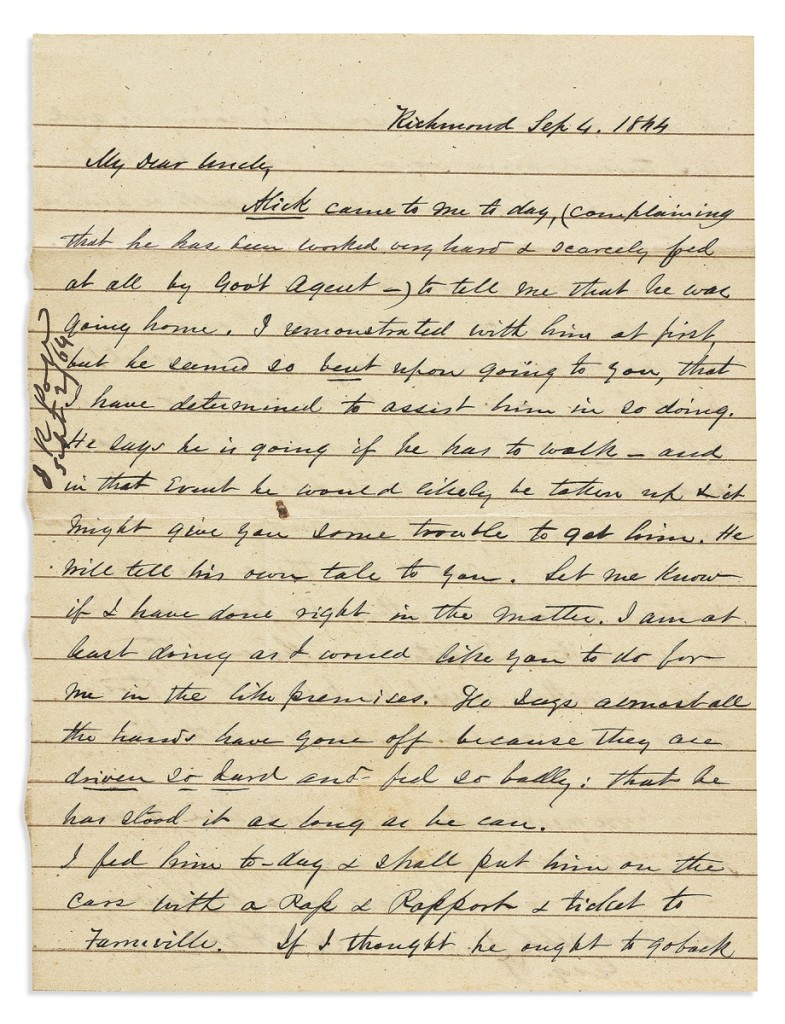 Richmond Sep 4. 1864
My Dear Uncle,
Alick came to me to day, (complaining
that he has been worked very hard & scarcely fed
at all by Gov't Agent —) to tell me that he was
going home. I remonstrated with him at first,
but he seemed so bent upon going to you, that
I have determined to assist him in so doing.
He says he is going if he has to walk — and
in that Event he would likely be taken up & it
might give you some trouble to get him. He
will tell his own tale to you. Let me know
if I have done right in the matter. I am at
least doing as I would like you to do for
me in the like premises. He says almost all
the hands have gone off because they are
driven so hard and fed so badly: that he
has stood it as long as he can.
I fed him to-day & shall put him on the
cars with a Pass & Passport & ticket to
Farmville. If I thought he ought to go back
Sept 2/64